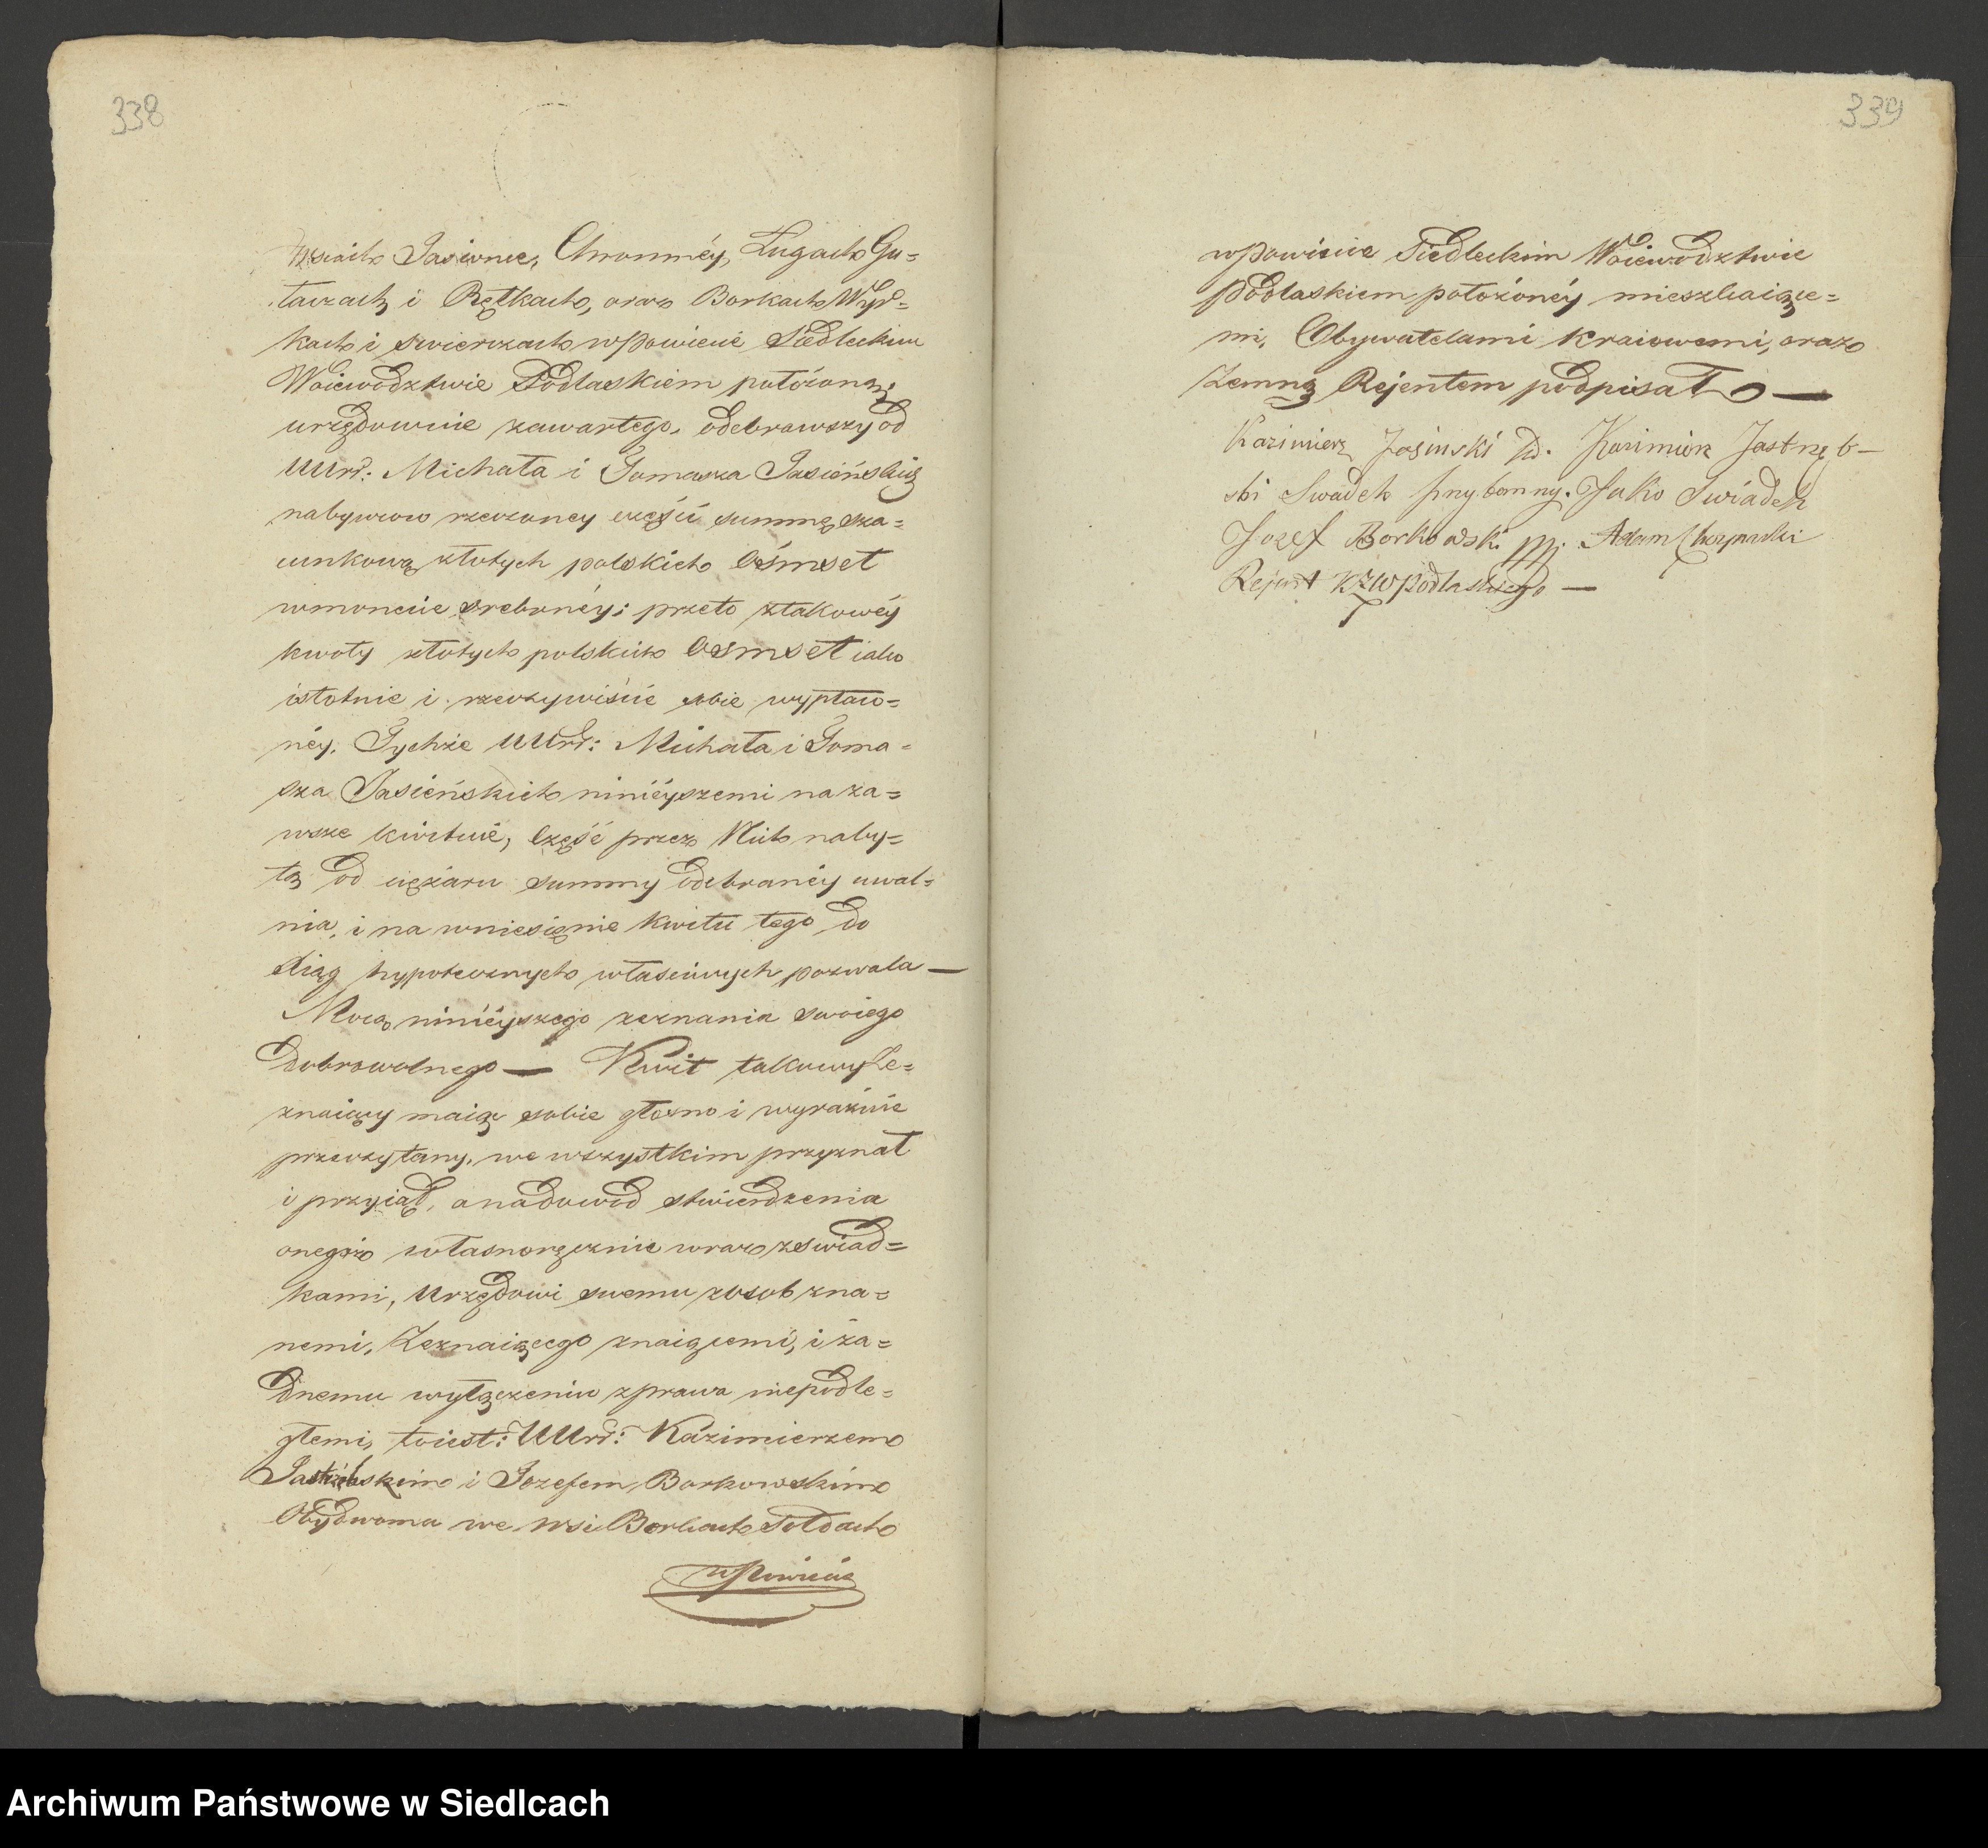 338
wsiach Jasiwnie, Chromnéy, Ługach Gu=
taczach i Rętkach, oraz Borkach Wyr=
kach i Swierczach w Powiecie Siedleckim
Woiewodztwie Podlaskiem położoney
urzędownie zawartego, odebrawszy od
UUrd: Michała i Tomasza Jasieńskich
nabywcow rzeczoney części summę sza=
cunkową złotych polskich Ośmset
w moncie srebrnéy; przeto z takowéy
kwoty złotych polskich Osmset iako
istotnie i rzeczywiście sobie wypłaco=
néy, Tychże UUrd: Michała i Toma=
sza Jasieńskich ninieyszemi na za=
wsze kwituie, Część przez Nich naby=
tą od ciężaru summy odebranéy uwal=
nia, i na wniesięnie kwitu tego do
Xiąg hypotecznych właściwych pozwala —
Mocą ninieyszego zeznania swoiego
Dobrowolnego — Kwit takowy Ze=
znaiący maiąc sobie głosno i wyraznie
przeczytany, we wszystkim przyznał
i przyiął, a na dowod stwierdzenia
onegoż własnoręcznie wraz z swiad=
kami, Urzędowi swemu z osob zna=
nemi, Zeznaiącego znaiącemi, i ża=
dnemu wyłączeniu z prawa niepodle=
głemi, to iest: UUrd: Kazimierzem
Jastrzębskim i Jozefem Borkowskim
Obydwoma we wsi Borkach Sołdach
w Powiecie
339
w Powiecie Siedleckim Woiewodztwie
Podlaskiem położonéy mieszkaiące=
mi, Obywatelami Kraiowemi, oraz
Zemną Rejentem podpisał —
Kazimierz Jasinski Kazimierz Jastrzęb—
ski Swadek przytomny. Jako Swiadek
Jozef Borkowski Adam
Rejent KZW Podlaskiego —
Archiwum Państwowe w Siedlcach